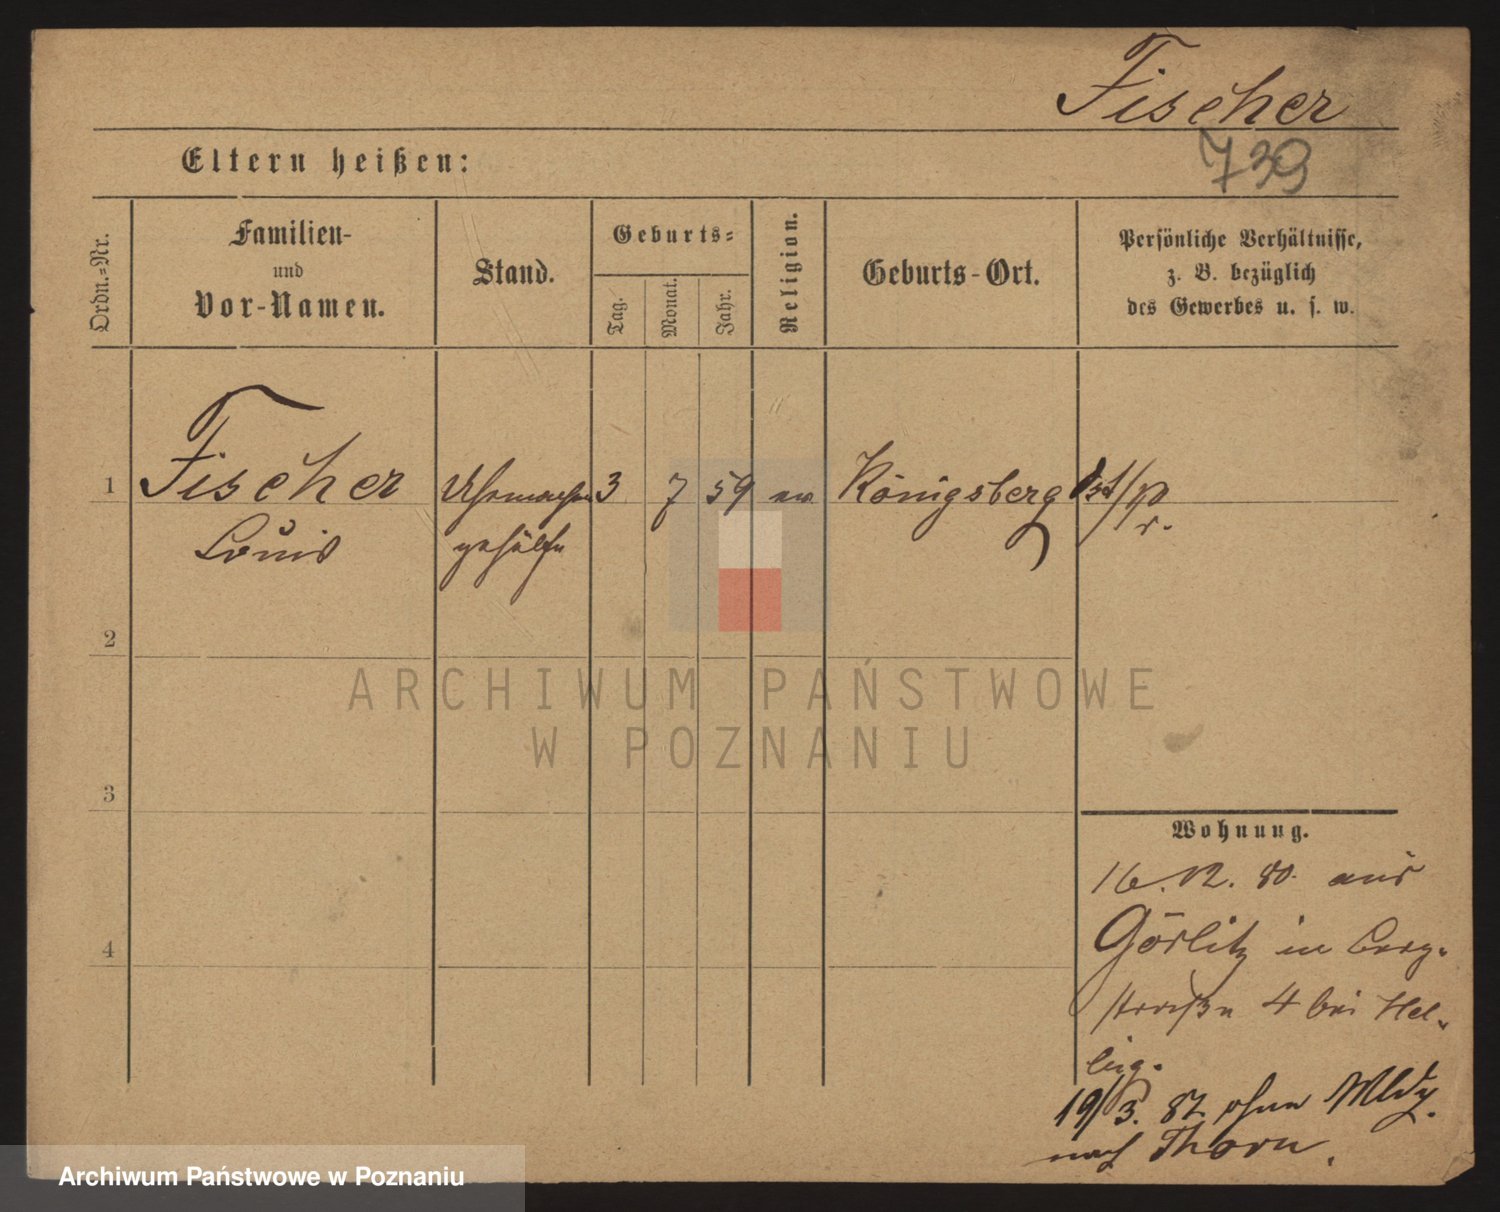 Fischer
739
Eltern heißen:
Ordn.=Nr.
Familien-
und
Vor-Namen.
Stand.
Geburts=
Tag.
Monat.
Jahr.
Religion.
Geburts-Ort.
Persönliche Verhältnisse,
z. B. bezüglich
des Gewerbes u. s. w.
1 Fischer Uhrmacher 3 7 59 ev Königsberg
Louis gehülfe
2
3
4
Wohnung.
16.12.80. aus
Görlitz in Berg-
straße 4 bei Hel-
ling.
19/3. 82 ohne Mldg.
nach Thorn.
ARCHIWUM PAŃSTWOWE
W POZNANIU
Archiwum Państwowe w Poznaniu